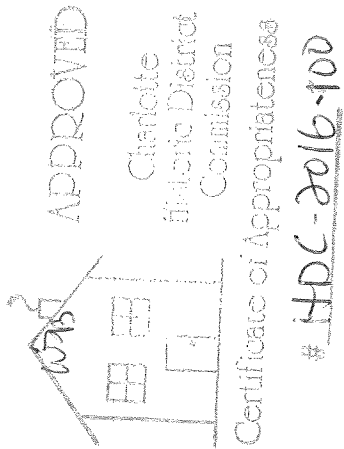 APPROVED
Charlotte
Historic District
Commission
Certificate of Appropriateness
# HDC-2016-100